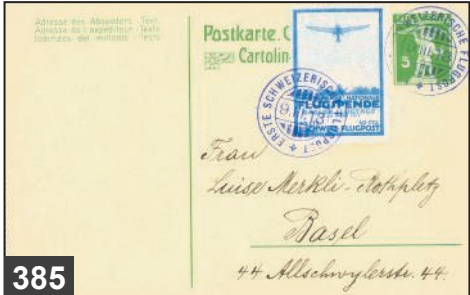 Adresse des Absenders - Text.
Adresse de l'expéditeur - Texte
Indirizzo del mittente - Testo
Postkarte. C
Cartolin
5
ERSTE SCHWEIZERISCHE FLUGPOST
NATIONALE
FLUGSPENDE
SCHWEIZ. FLUGPOST
Frau
Luise Merkli-Rothpletz
Basel
44 Allschwylerstr. 44.
385